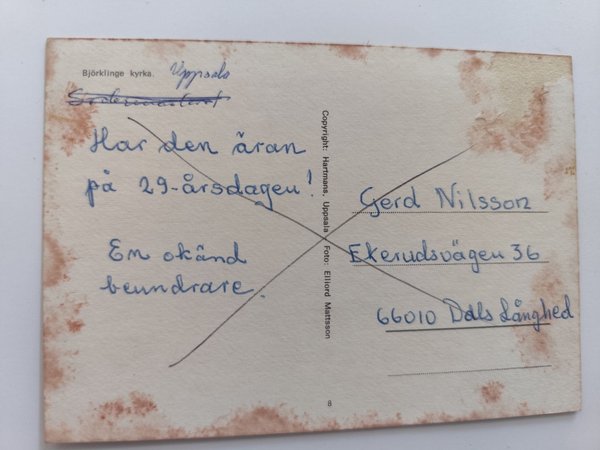 Björklinge kyrka. Uppsala
Södermanland
Har den äran
på 29-årsdagen!
En okänd
beundrare.
Copyright: Hartmans, Uppsala Foto: Elliord Mattsson
Gerd Nilsson
Ekerudsvägen 36
66010 Dals Långhed
8